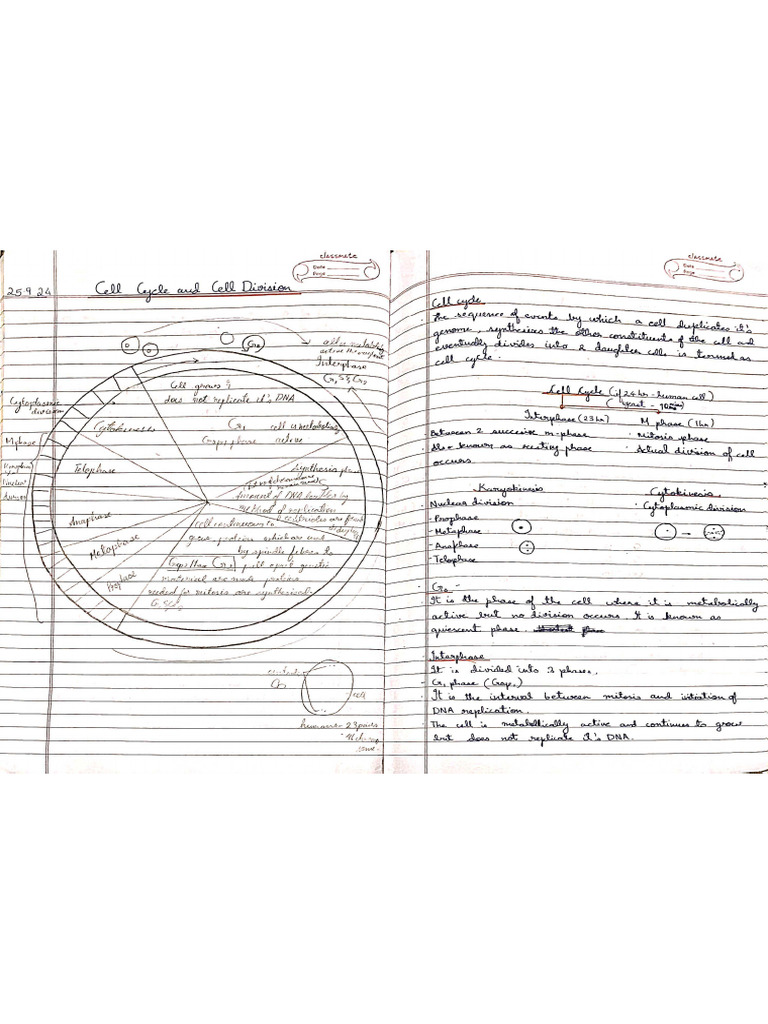 classmate
Date
Page
25.9.24
Cell Cycle and Cell Division
active
Interphase
G₁, S, G₂
G₀
Cytoplasmic
division
M phase
division
Cell grows &
does not replicate it's DNA
G₁ cell is metabolically
Gap₁ phase active
Cytokinesis
Telophase
Anaphase
Metaphase
Prophase
Synthesis phase
of DNA by
method of replication
cell continues to
grow, proteins which are
by spindle fibers to
Gap₂ Phase G₂ pull apart genetic
material are made proteins
needed for mitosis are synthesised.
humans - 23 pairs
classmate
Date
Page
Cell cycle
The sequence of events by which a cell duplicates it's
genome, synthesises the other constituents of the cell and
eventually divides into 2 daughter cells is termed as
cell cycle.
Cell Cycle (of 24 hr - human cell)
(yeast - 90 mins)
Interphase (23 hr) M phase (1 hr)
Between 2 successive m-phase · mitosis phase
Also known as resting phase · Actual division of cell
occurs.
Karyokinesis Cytokinesis
Nuclear division · Cytoplasmic division
- Prophase
- Metaphase
- Anaphase
- Telophase
G₀ -
It is the phase of the cell where it is metabolically
active but no division occurs. It is known as
quiescent phase.
Interphase
It is divided into 3 phases.
- G₁ phase (Gap₁)
- It is the interval between mitosis and initiation of
DNA replication.
The cell is metabolically active and continues to grow
but does not replicate it's DNA.